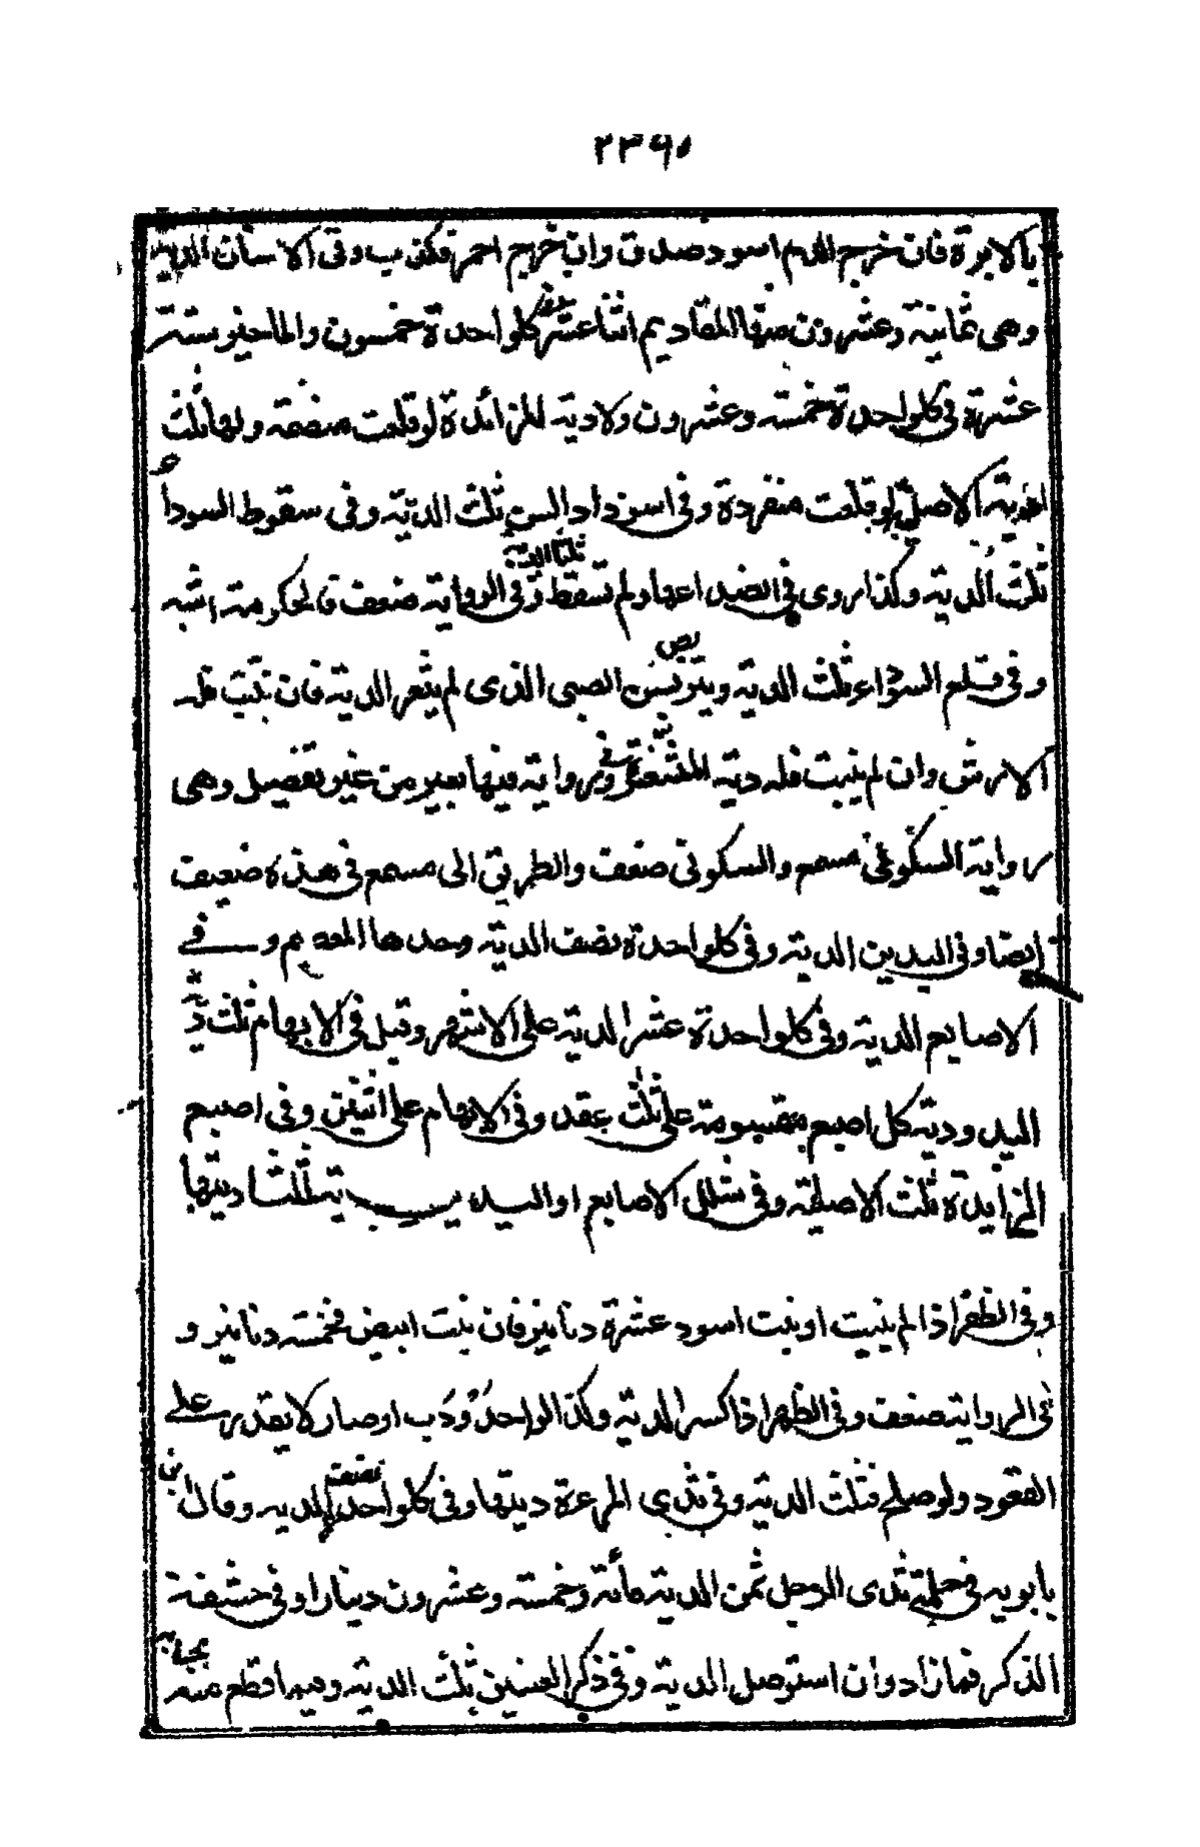 ٢٣٩٥
بالابرة فان خرج الدم اسود صدق وان خرج احمر فكذب وفى الاسنان الدية
وهى ثمانية وعشرون منها المقاديم اثنا عشر فى كلواحدة خمسون والماخير ستة
عشرة فى كلواحدة خمسة وعشرون ولا دية للزائدة لو قلعت منضمة ولها ثلث
دية الاصلى لو قلعت منفردة وفى اسوداد السن ثلث الدية وفى سقوط السوداء
ثلث الدية وكذا روى فى انصداعها ولم تسقط ثلثا الدية وفى الرواية ضعف فالحكومة اشبه
وفى قلع السوداء ثلث الدية ويتربص بسن الصبى الذى لم يثغر الدية فان نبت فله
الارش وان لم ينبت فله دية المثغر وفى رواية فيها بعير من غير تفصيل وهى
رواية السكونى عن مسمع والسكونى ضعف والطريق الى مسمع فى هذه ضعيف
ايضا وفى اليدين الدية وفى كلواحدة نصف الدية وحدها المعصم وفى
الاصابع الدية وفى كلواحدة عشر الدية على الاشهر وقيل فى الابهام ثلث دية
اليد ودية كل اصبع مقسومة على ثلث عقد وفى الابهام على اثنين وفى اصبع
الزايدة ثلث الاصلية وفى شلل الاصابع او اليد ثلثا ديتها
وفى الظفر اذا لم ينبت او نبت اسود عشرة دنانير فان نبت ابيض فخمسة دنانير و
فى الرواية ضعف وفى الظهر اذا كسر الدية وكذا لو احدودب او صار لا يقدر على
القعود ولو صلح فثلث الدية وفى ثدى المرءة ديتها وفى كلواحد نصف الدية وقال ابن
بابويه فى حلمة ثدى الرجل ثمن الدية مائة وخمسة وعشرون دينارا وفى حشفة
الذكر فما زاد وان استوصل الدية وفى ذكر العنين ثلث الدية وفيما قطع منه بحسابه